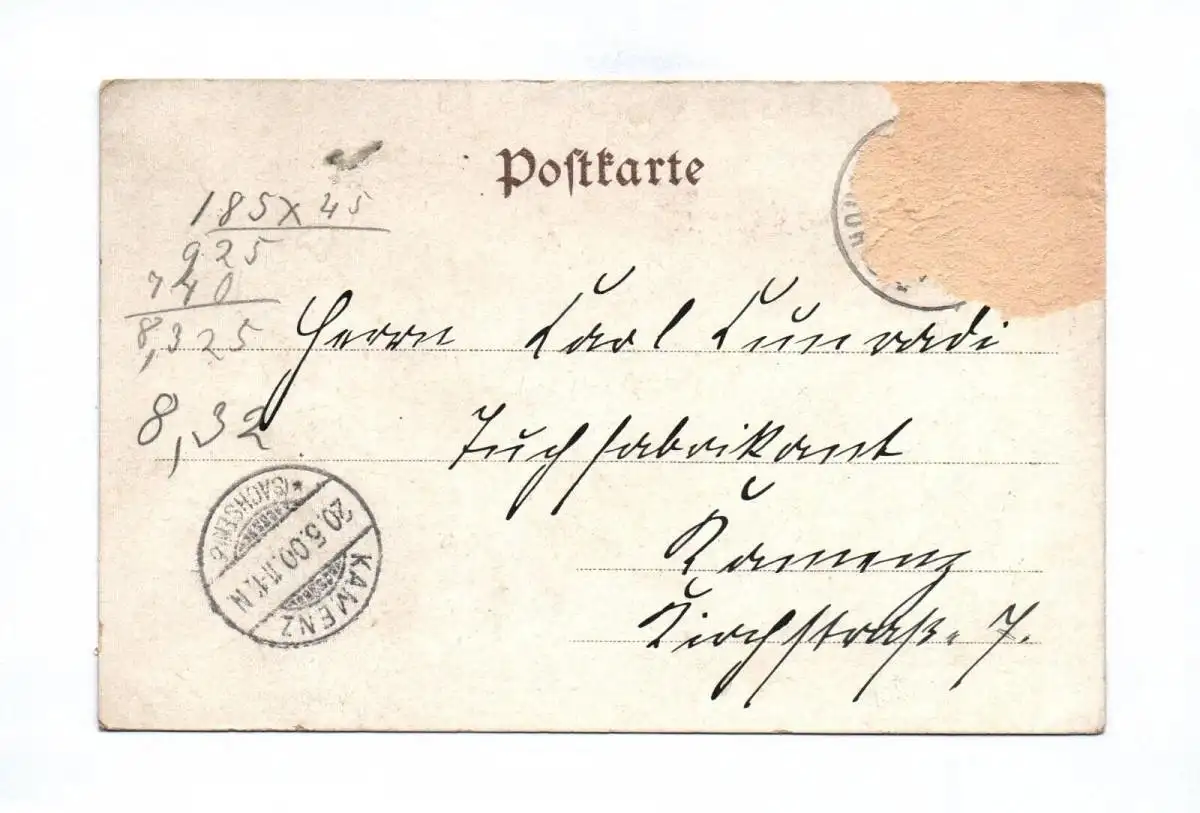 Postkarte
185 x 45
925
740
8,325
8,32
Herrn Carl Cunradi
Tuchfabrikant
Kamenz
Kirchstraße 7.
KAMENZ
(SACHSEN)
20.5.00.11-12.N